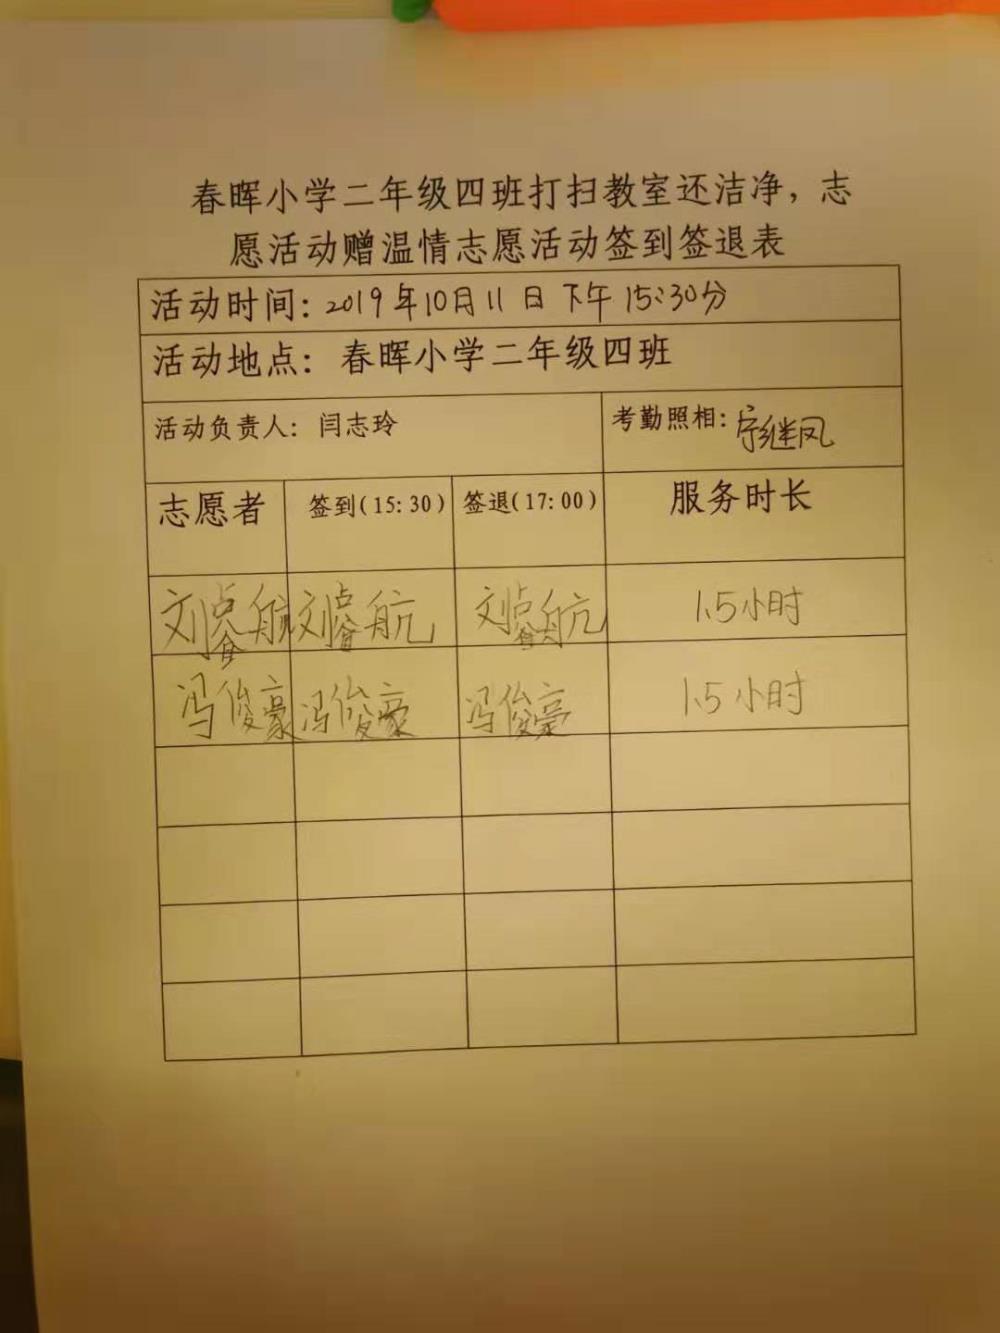 春晖小学二年级四班打扫教室还洁净，志
愿活动赠温情志愿活动签到签退表
活动时间：2019年10月11日下午15:30分
活动地点：春晖小学二年级四班
活动负责人：闫志玲 考勤照相：宁继凤
志愿者 签到(15:30) 签退(17:00) 服务时长
刘睿航 刘睿航 刘睿航 1.5小时
冯俊豪 冯俊豪 冯俊豪 1.5小时